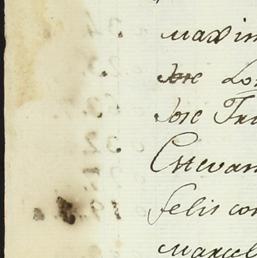 Maxim
Jose Lo
Jose Tri
Estevan
felis con
Marcel